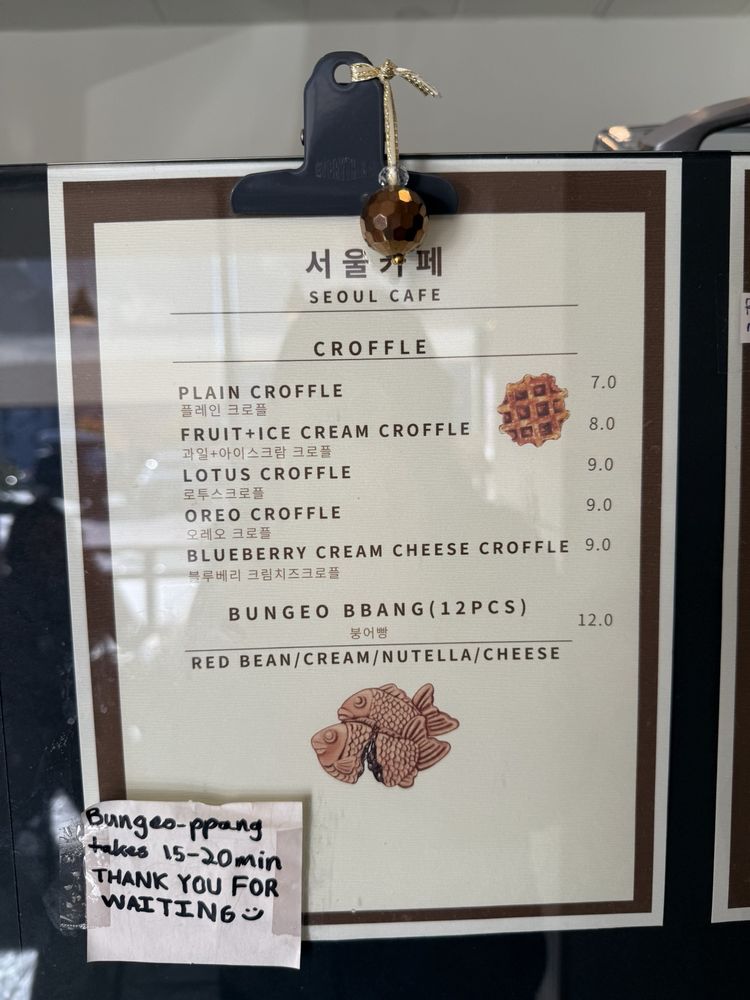 서울카페
SEOUL CAFE
CROFFLE
PLAIN CROFFLE 7.0
플레인 크로플
FRUIT+ICE CREAM CROFFLE 8.0
과일+아이스크림 크로플
LOTUS CROFFLE 9.0
로투스크로플
OREO CROFFLE 9.0
오레오 크로플
BLUEBERRY CREAM CHEESE CROFFLE 9.0
블루베리 크림치즈크로플
BUNGEO BBANG(12PCS) 12.0
붕어빵
RED BEAN/CREAM/NUTELLA/CHEESE
Bungeo-ppang
takes 15-20min
THANK YOU FOR
WAITING